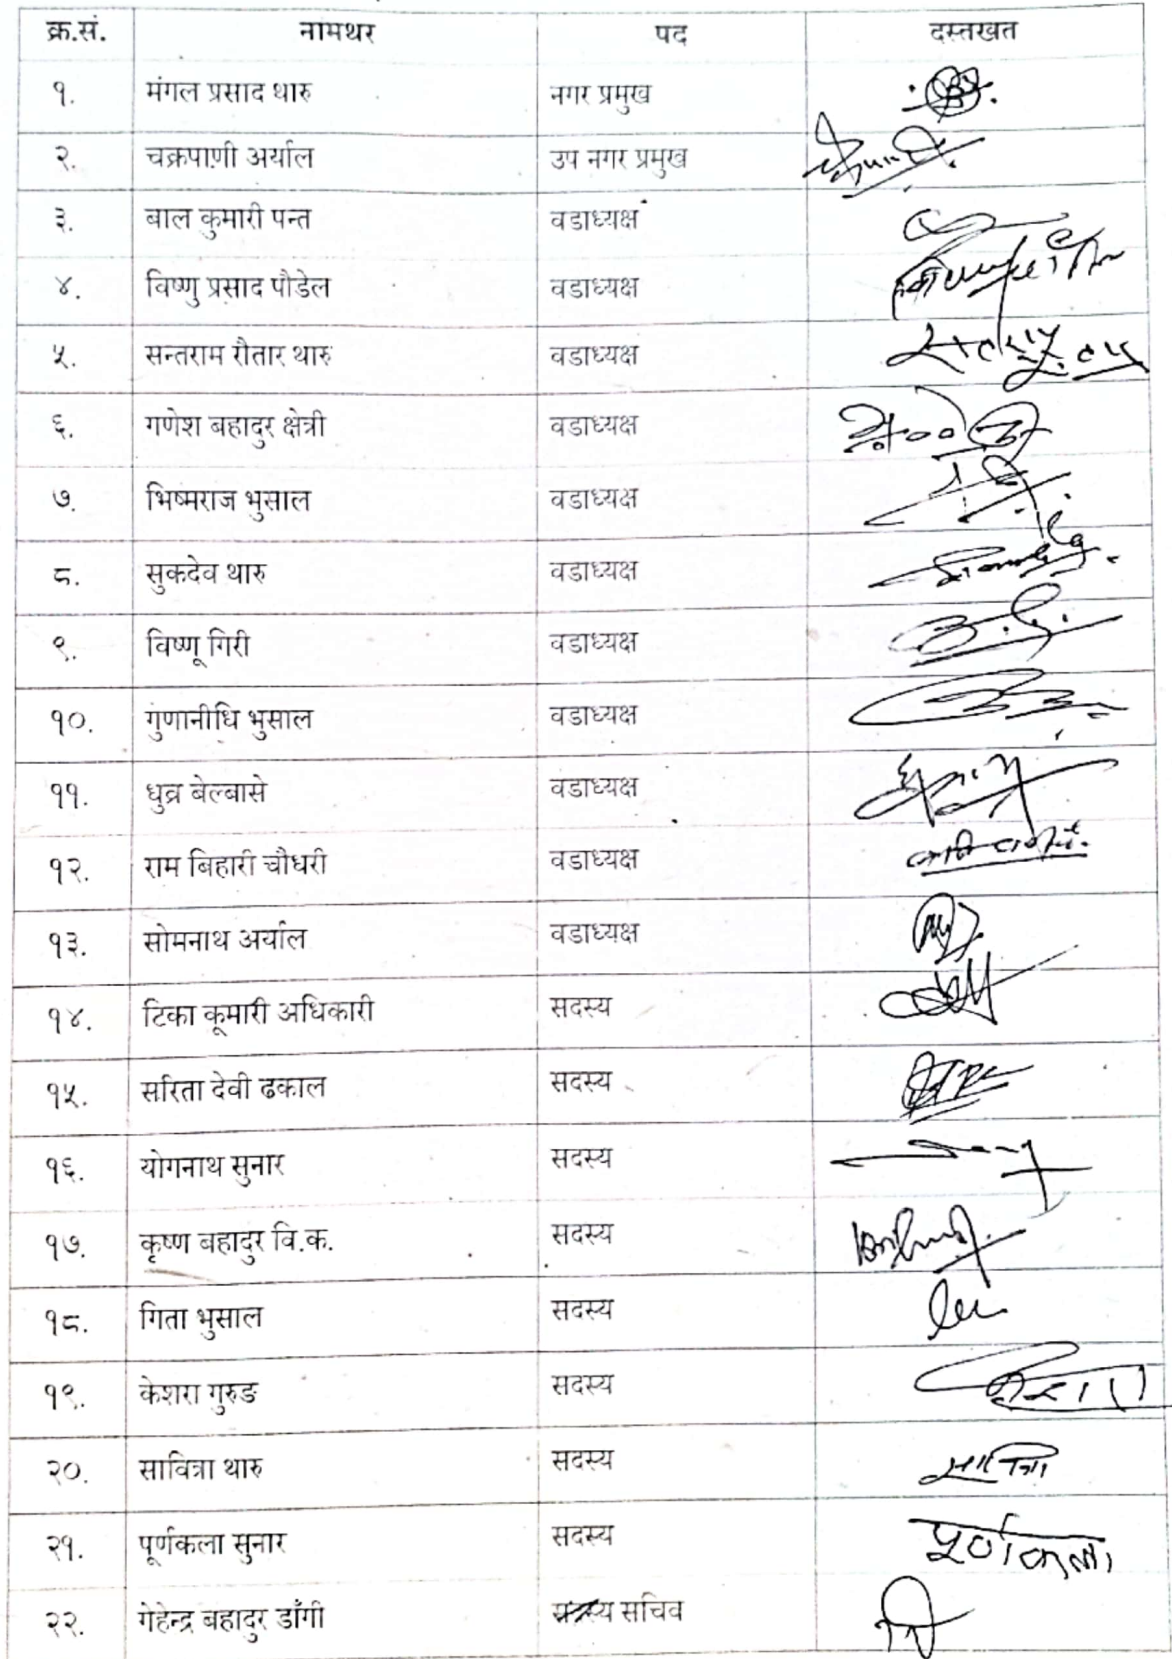 क्र.सं. नामथर पद दस्तखत
१. मंगल प्रसाद थारु नगर प्रमुख
२. चक्रपाणी अर्याल उप नगर प्रमुख
३. बाल कुमारी पन्त वडाध्यक्ष
४. विष्णु प्रसाद पौडेल वडाध्यक्ष
५. सन्तराम रौतार थारु वडाध्यक्ष
६. गणेश बहादुर क्षेत्री वडाध्यक्ष
७. भिष्मराज भुसाल वडाध्यक्ष
८. सुकदेव थारु वडाध्यक्ष
९. विष्णू गिरी वडाध्यक्ष
१०. गुणानीधि भुसाल वडाध्यक्ष
११. धुव्र बेल्बासे वडाध्यक्ष
१२. राम बिहारी चौधरी वडाध्यक्ष
१३. सोमनाथ अर्याल वडाध्यक्ष
१४. टिका कूमारी अधिकारी सदस्य
१५. सरिता देवी ढकाल सदस्य
१६. योगनाथ सुनार सदस्य
१७. कृष्ण बहादुर वि.क. सदस्य
१८. गिता भुसाल सदस्य
१९. केशरा गुरुङ सदस्य
२०. सावित्रा थारु सदस्य सावित्रा
२१. पूर्णकला सुनार सदस्य पूर्णकला
२२. गेहेन्द्र बहादुर डाँगी सचिव